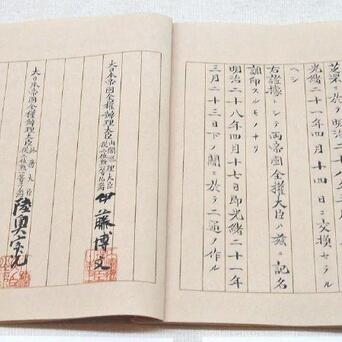 芝罘ニ於テ明治二十八年五月八日即
光緒二十一年四月十四日ニ交換セラル
ヘシ
右證據トシテ兩帝國全權大臣ハ茲ニ記名
調印スルモノナリ
明治二十八年四月十七日即光緒二十一年
三月二十三日下ノ關ニ於テ二通ヲ作ル
大日本帝國全權辦理大臣內閣總理大臣從二位勳一等伯爵伊藤博文
大日本帝國全權辦理大臣外務大臣從二位勳一等子爵陸奧宗光